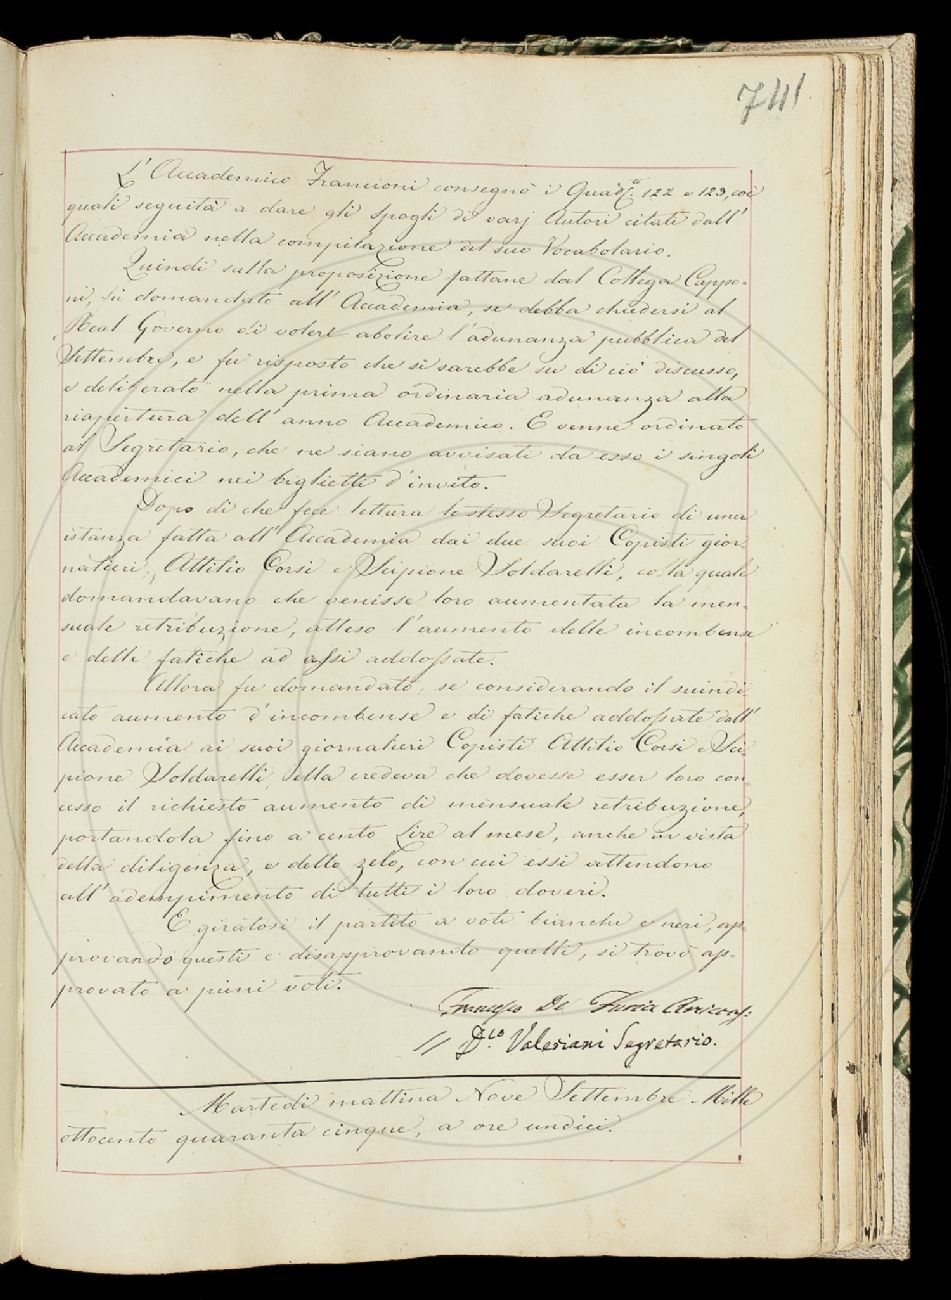 741
L'Accademico Francioni consegnò i Quad.ni 122 e 123, coi
quali seguita a dare gli Spogli di varj Autori citati dall'
Accademia nella compilazione del suo Vocabolario.
Quindi sulla proposizione fattane dal Collega Cappo-
ni, fù domandato all'Accademia, se debba chiedersi al
Real Governo di volere abolire l'adunanza pubblica del
Settembre, e fu risposto che si sarebbe su di ciò discusso,
e deliberato nella prima ordinaria adunanza alla
riapertura dell'anno Accademico. E venne ordinato
al Segretario, che ne siano avvisati da esso i singoli
Accademici nei biglietti d'invito.
Dopo di che fece lettura lo stesso Segretario di una
istanza fatta all'Accademia dai due suoi Copisti gior-
nalieri, Attilio Corsi e Scipione Soldarelli, colla quale
domandavano che venisse loro aumentata la men-
suale retribuzione, atteso l'aumento delle incombense
e delle fatiche ad assi addossate.
Allora fu domandato, se considerando il suindi-
cato aumento d'incombense e di fatiche addossate dall'
Accademia ai suoi giornalieri Copisti Attilio Corsi e Sci-
pione Soldarelli, ella credeva che dovesse esser loro con-
cesso il richiesto aumento di mensuale retribuzione,
portandola fino a cento Lire al mese, anche in vista
della diligenza, e dello zelo, con cui essi attendono
all'adempimento di tutti i loro doveri.
E giratosi il partito a voti bianchi e neri, ap-
provando questi e disapprovando quelli, si trovò ap-
provato a pieni voti.
Francesco Del Furia Aricons:
// D.co Valeriani Segretario.
Martedì mattina Nove Settembre Mille
ottocento quaranta cinque, a ore undici.